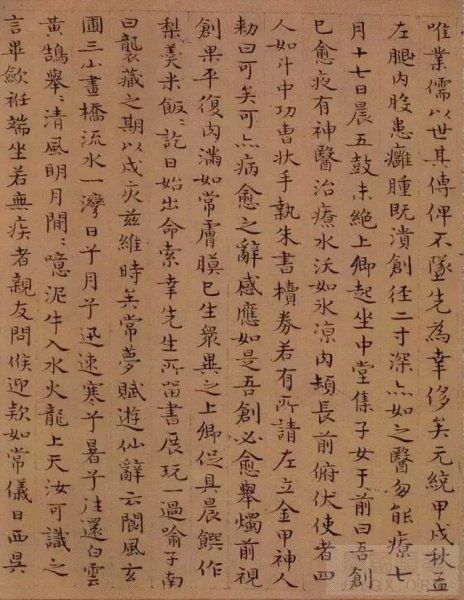 唯業儒以世其傳俾不墜先為幸侈矣元統甲戌秋孟
左腿内股患癰腫既潰創徑二寸深亦如之醫勿能療七
月十七日晨五鼓未絕上卿起坐中堂集子女于前曰吾創
已愈夜有神醫治療水沃如冰凉肉頓長前俯伏使者四
人如斗中功曹狀手執朱書牘券若有所請左立金甲神人
勑曰可矣可亦病愈之辭感應如是吾創必愈舉燭前視
創果平復肉滿如常膚膜已生衆異之上卿促具晨饌作
梨羹米飯訖日始出命索幸先生所留書展玩一過喻子南
曰襲藏之期以戌亥兹維時矣常夢賦遊仙辭云閬風玄
圃三山畫橋流水一灣日兮月兮迅速寒兮暑兮往還白雲
黃鵠舉舉清風明月閒閒噫泥牛入水火龍上天汝可識之
言畢歛袵端坐若無疾者親友問候迎款如常儀日西昃